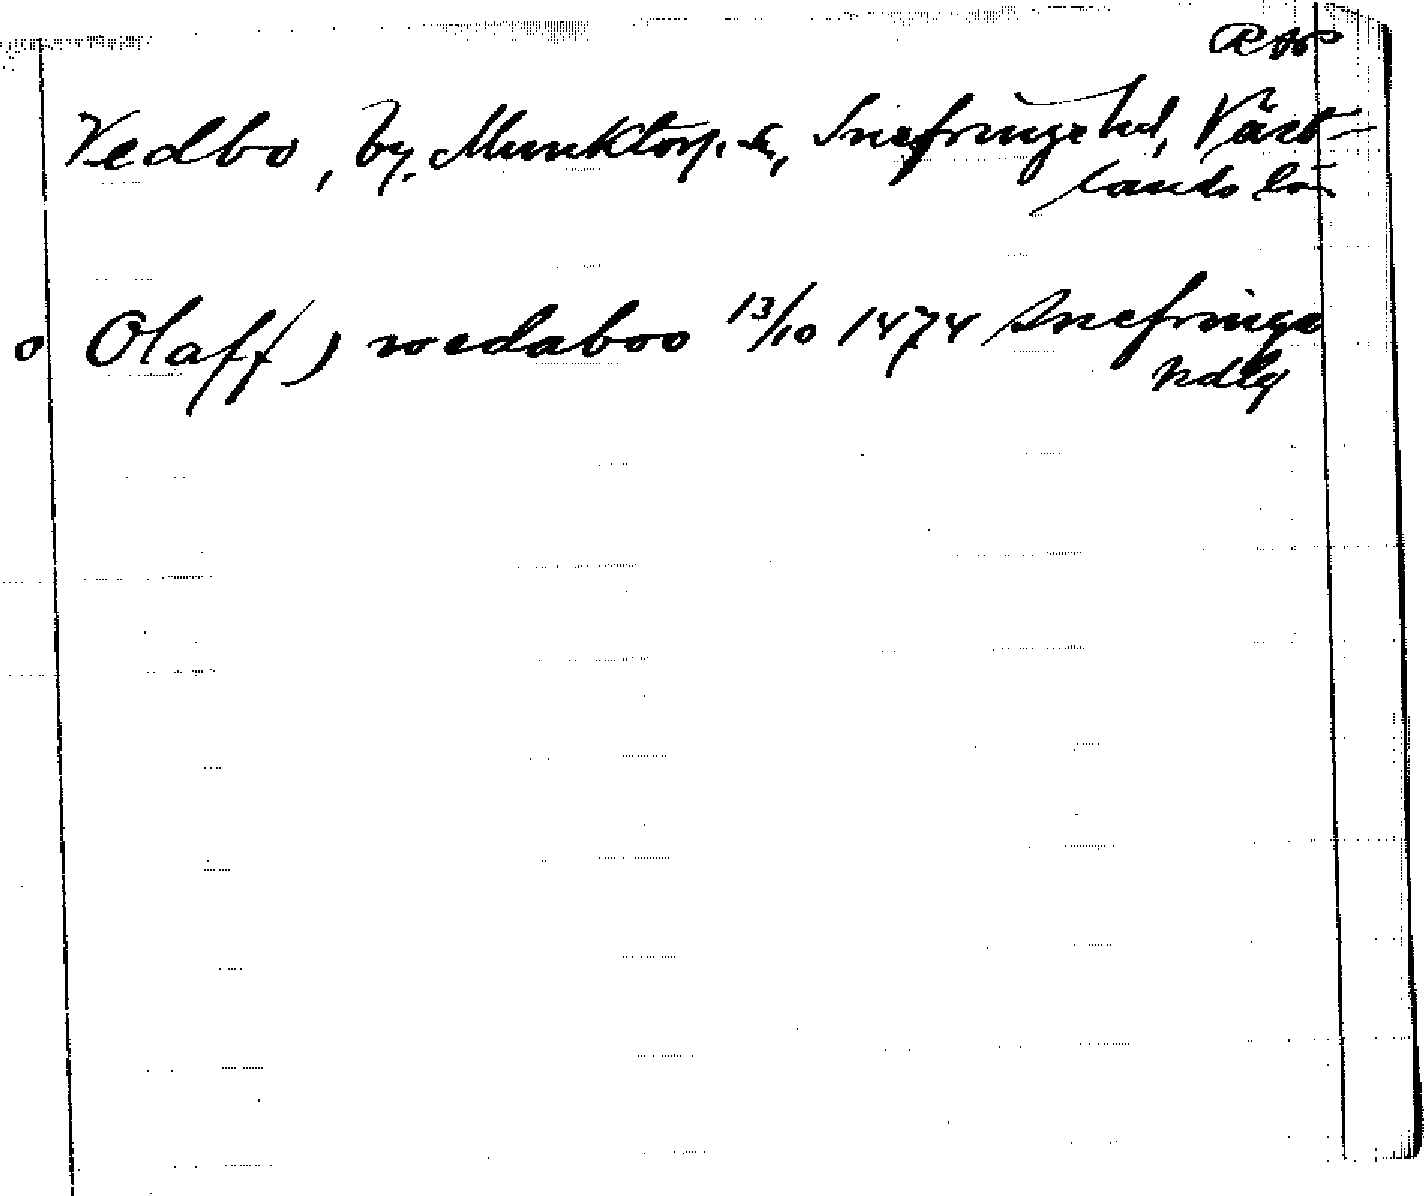 Vedbo, by, Munktorp s, Snefringe hd, Väst=
lands län
o Olaff) wedaboo 13/10 1474 Snefringe
hdlg